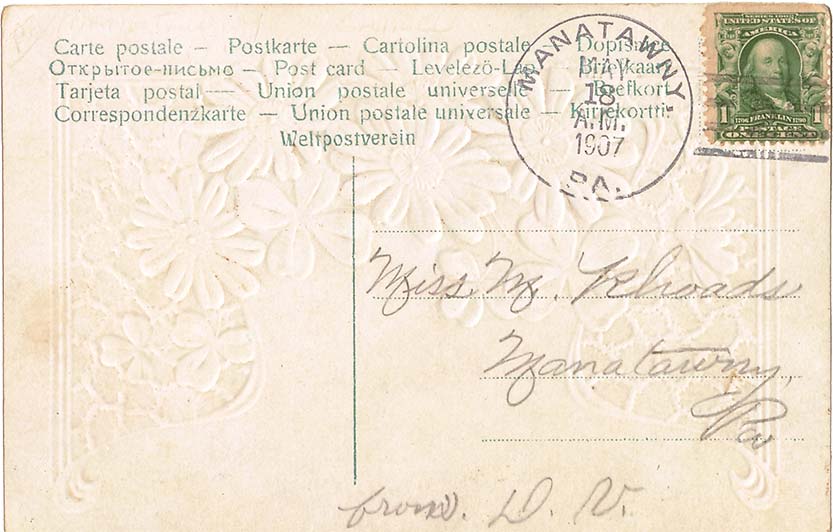 Carte postale — Postkarte — Cartolina postale — Dopisnice
Открытое-письмо — Post card — Levelező-Lap — Brevkaart
Tarjeta postal — Union postale universelle — Briefkort
Correspondenzkarte — Union postale universale — Kirjekortti
Weltpostverein
MANATAWNY.
MAY
18
A.M.
1907
PA.
SERIES 1902
UNITED STATES OF
AMERICA
1706 FRANKLIN 1790
1 1
POSTAGE
ONE CENT
Miss. M. Rhoads
Manatawny,
Pa
from. D. V.